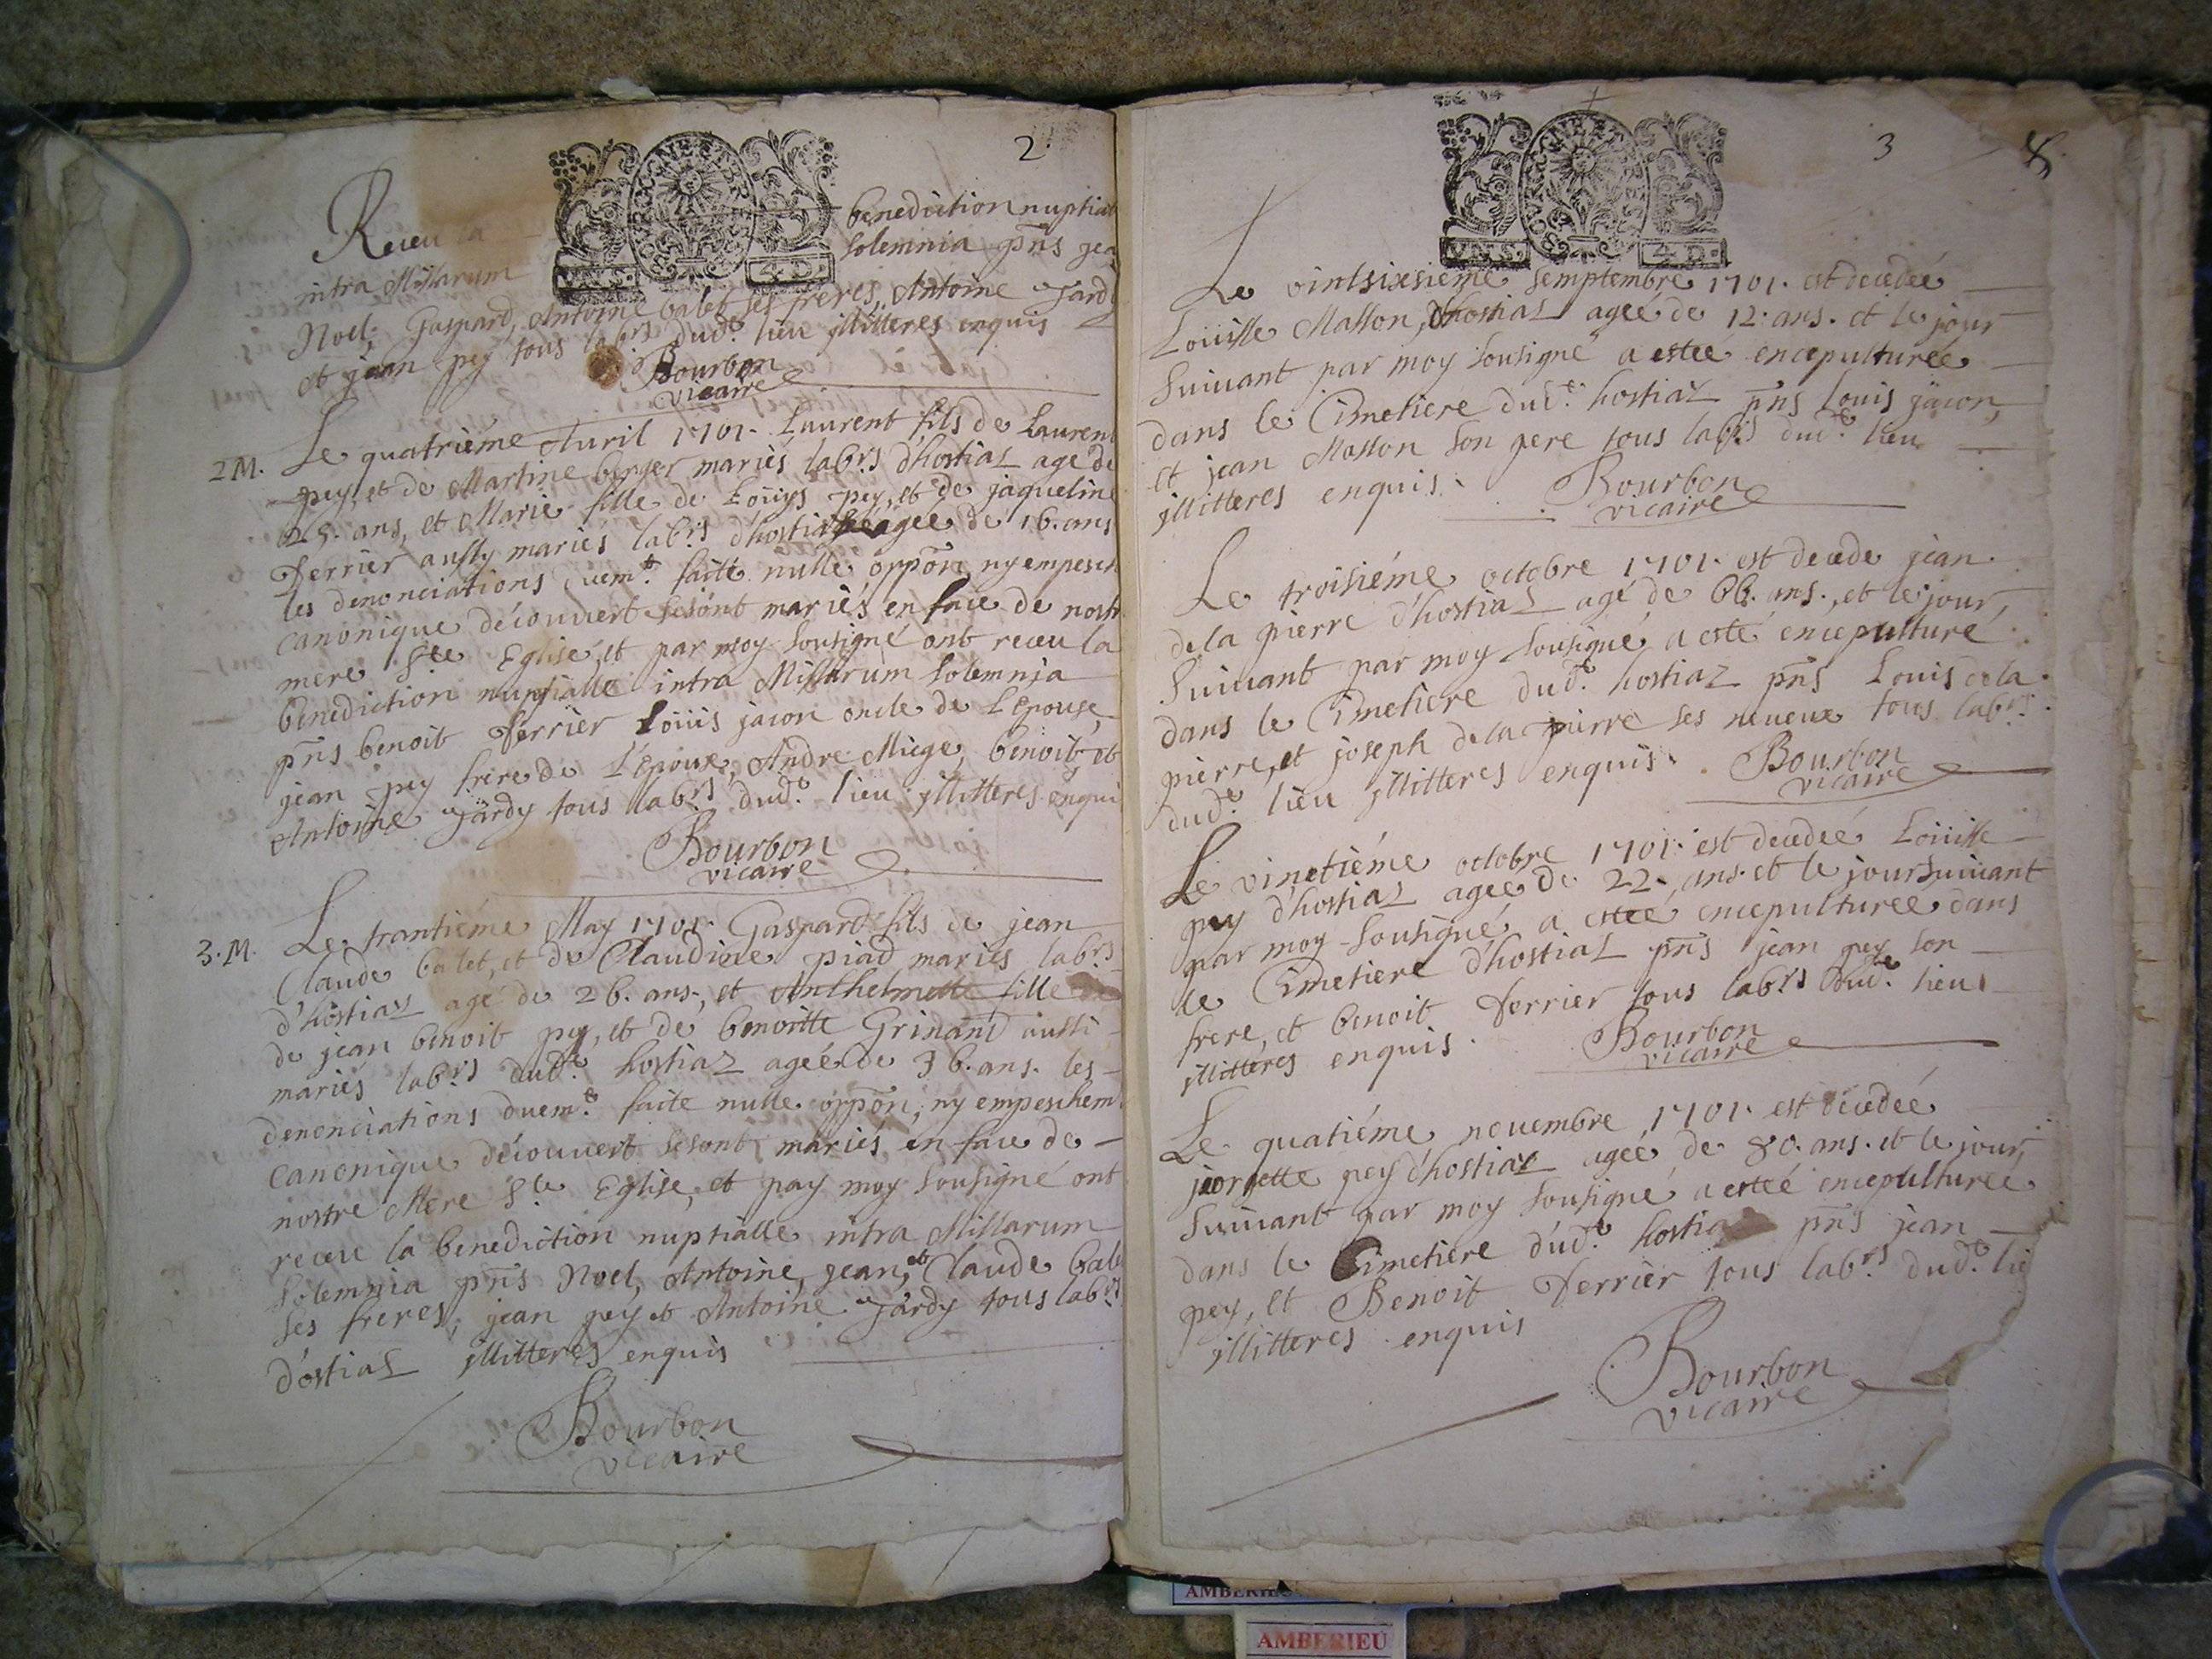 2.
Receu la benediction nuptial
intra Missarum solemnia pñs jea
Noel, Gaspard, Antoine balet ses freres, Antoine Jardy
et jean pey tous labrs dudt lieu jllitteres enquis
Bourbon
vicaire
2 M. Le quatriéme Auril 1701. Laurent fils de Laurent
pey, et de Martine berger mariés labrs d'hostiaz age de
25. ans, et Marie fille de Loüys pey, et de jaqueline
ferrier aussy mariés labrs d'hostiaz agée de 16. ans
les denonciations duemt faitte nulle oppõn, ny empesch
canonique découuert se sont mariés en face de nostr
mere Ste Eglise, et par moy sousigné ont receu la
benediction nuptialle intra Missarum solemnia
pñs benoit ferrier Loüis jacon oncle de L'Epouse
jean pey frere de L'Epoux, Andre Miege, benoit, et
Antoine Jardy tous labrs dudt lieu jllitteres enqui
Bourbon
vicaire
3. M. Le trantiéme May 1701. Gaspard fils de jean
Claude balet, et de Claudine piad mariés labrs
d'hostiaz agé de 26. ans, et Anthelmette fille
de jean benoit pey, et de benoitte Grinand aussi
mariés labrs dudt hostiaz ageé de 36. ans. les
denonciations duemt faite nulle oppõn, ny empeschemt
canonique découuert se sont mariés en face de
nostre Mere Ste Eglise, et pay moy sousigné ont
receu la benediction nuptialle intra Missarum
solemnia pñs Noel, Antoine, jean, et Claude bale
ses freres, jean pey et Antoine Jardy tous labrs
d'ostiaz jllitteres enquis
Bourbon
vicaire
3
Le vintsixsiéme semptembre 1701. est decedeé
Loüisse Masson, d'hostiaz ageé de 12. ans. et le jour
suiuant par moy sousigné a esteé encepulturée
dans le Cimetiere dudt hostiaz pñs Louis jacon,
et jean Masson son pere tous labrs dudt lieu
jllitteres enquis.
Bourbon
vicaire
Le troisiéme octobre 1701. est decede jean
dela pierre d'hostiaz agé de 66. ans., et le jour,
suiuant par moy sousigné, a esté encepulturé
dans le Cimetiere dudt hostiaz pñs Louis dela
pierre, et joseph dela pierre ses neueux tous labrs
dudt lieu jllitteres enquis.
Bourbon
vicaire
Le vinctiéme octobre 1701. est decedeé Loüisse
pey d'hostiaz ageé de 22. ans. et le jour suiuant
par moy sousigné, a esteé encepulturee dans
le Cimetiere d'hostiaz pñs jean pey son
frere, et benoit ferrier tous labrs dudt lieu
jllitteres enquis.
Bourbon
vicaire
Le quatiéme nouembre 1701. est decedeé
jeorgette pey d'hostiaz ageé de 80. ans. et le jour,
suiuant par moy sousigné a esteé encepulturée
dans le Cimetiere dudt hostiaz pñs jean
pey, et Benoit ferrier tous labrs dudt lie
jllitteres enquis
Bourbon
vicaire
AMBERIEU